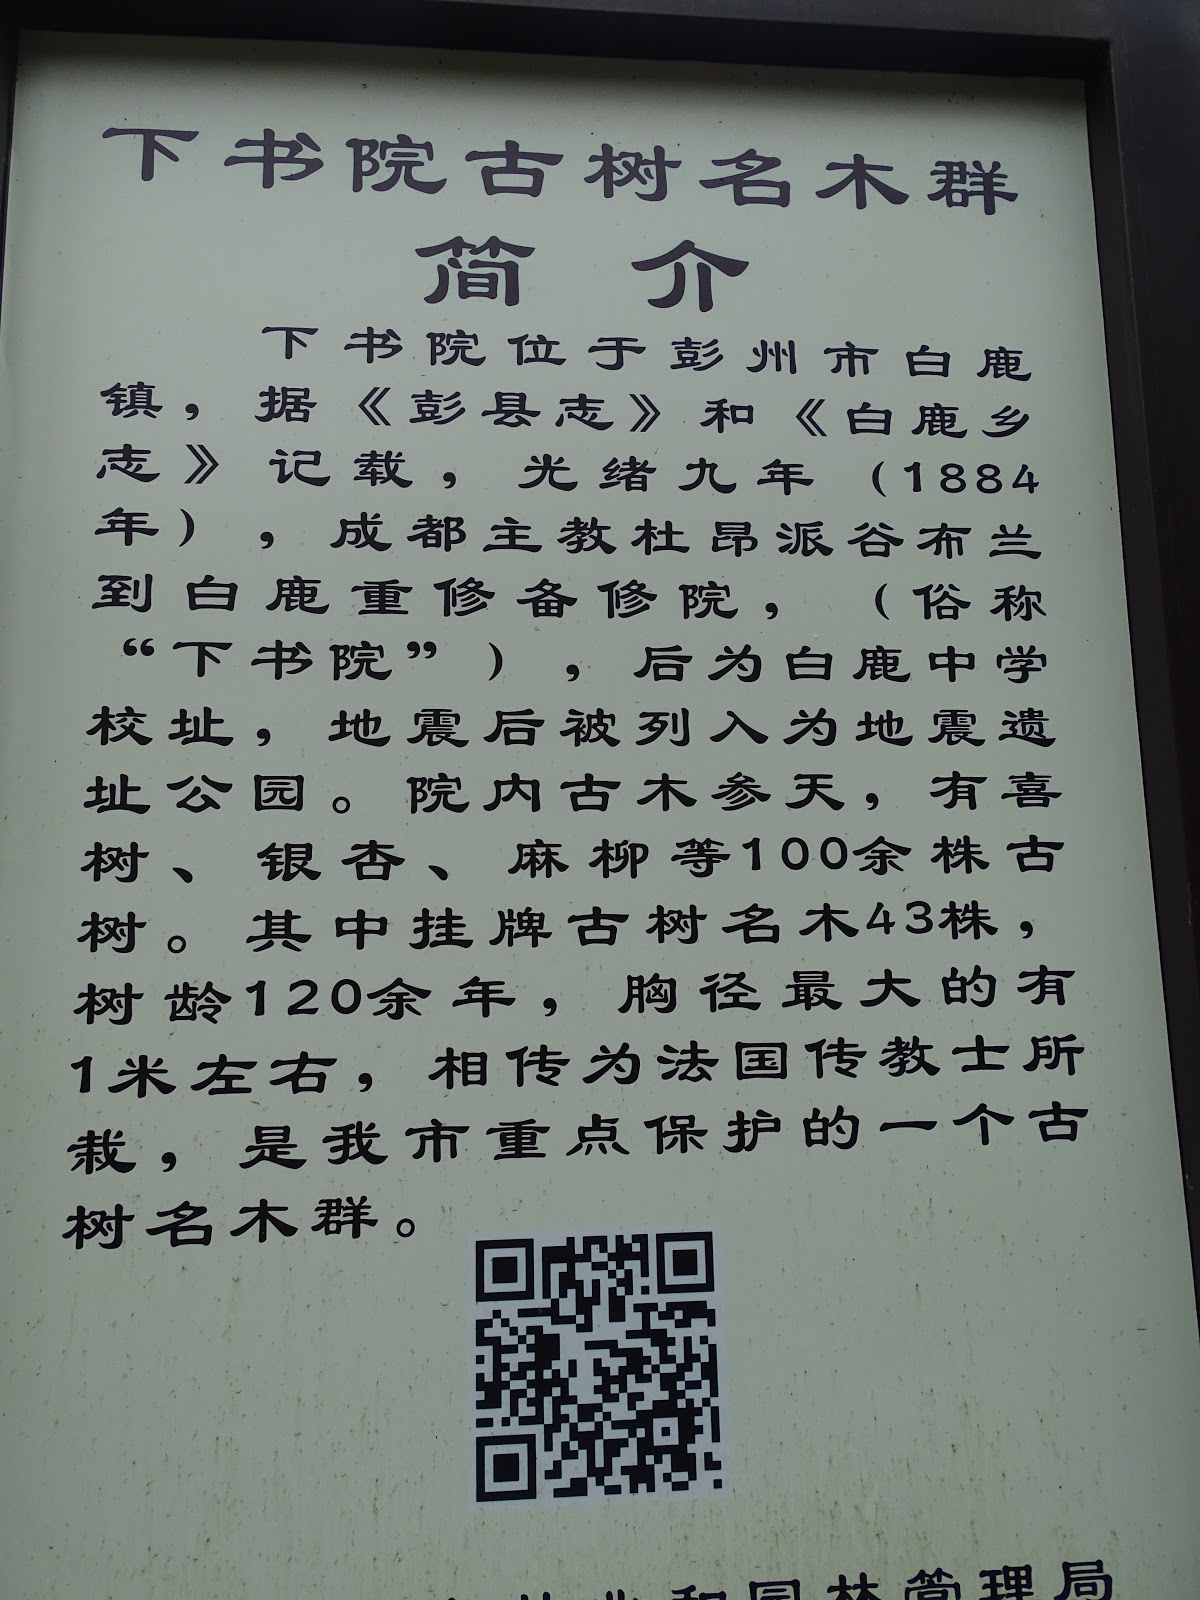 下书院古树名木群
简介
下书院位于彭州市白鹿
镇，据《彭县志》和《白鹿乡
志》记载，光绪九年（1884
年），成都主教杜昂派谷布兰
到白鹿重修备修院，（俗称
“下书院”），后为白鹿中学
校址，地震后被列入为地震遗
址公园。院内古木参天，有喜
树、银杏、麻柳等100余株古
树。其中挂牌古树名木43株，
树龄120余年，胸径最大的有
1米左右，相传为法国传教士所
栽，是我市重点保护的一个古
树名木群。
和园林管理局